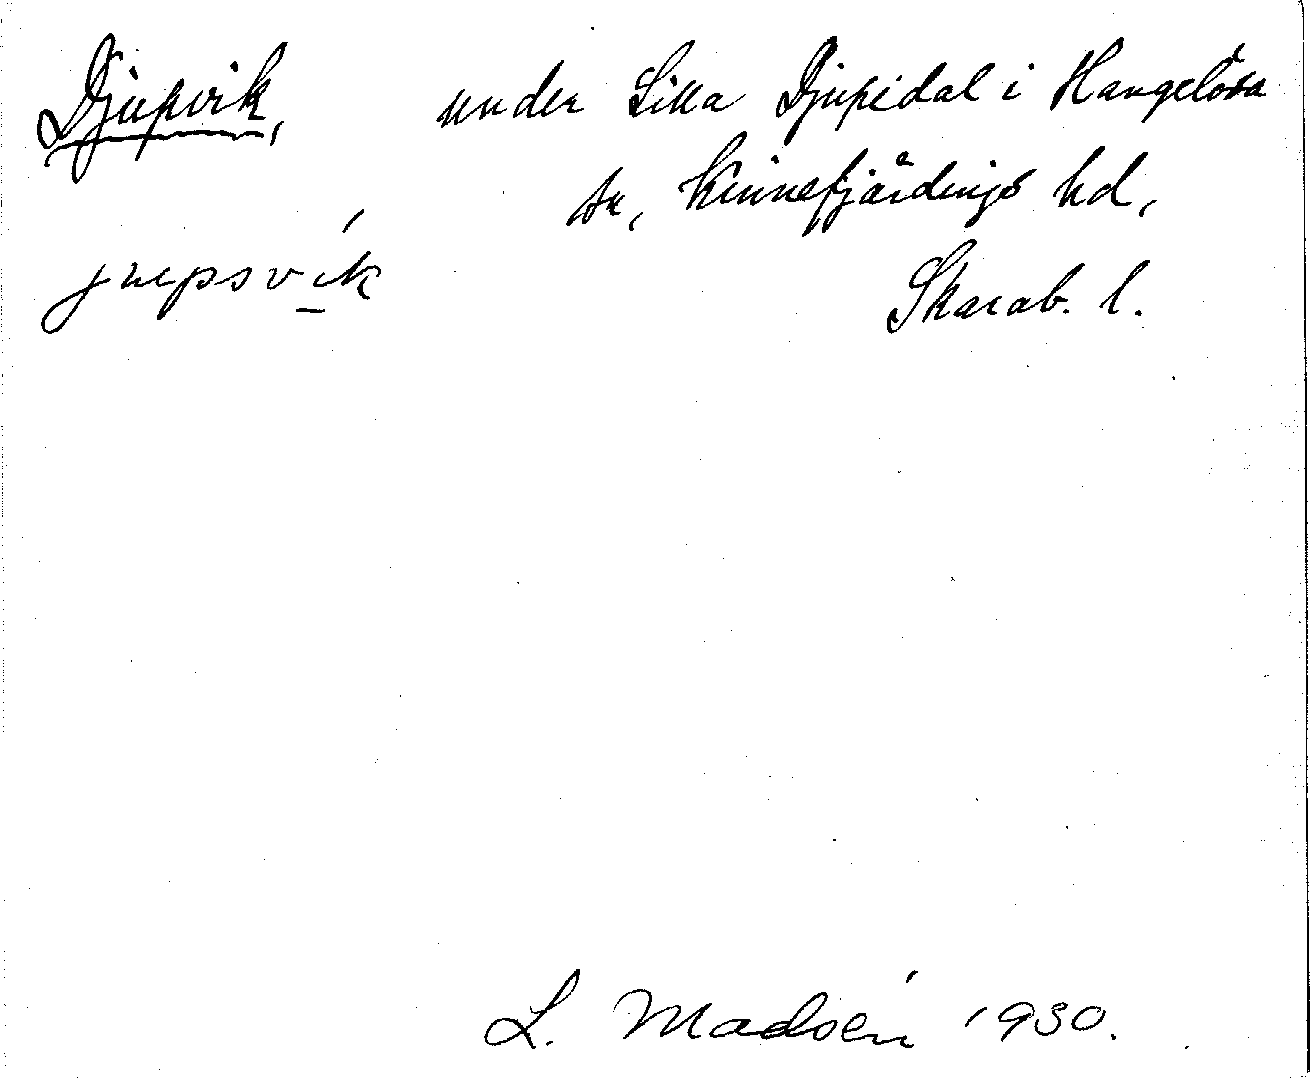 Djupvik, under Lilla Djupedal i Hangelösa
sn, Kinnefjärdings hd,
jupsvik Skarab. l.
L. Madsén 1930.